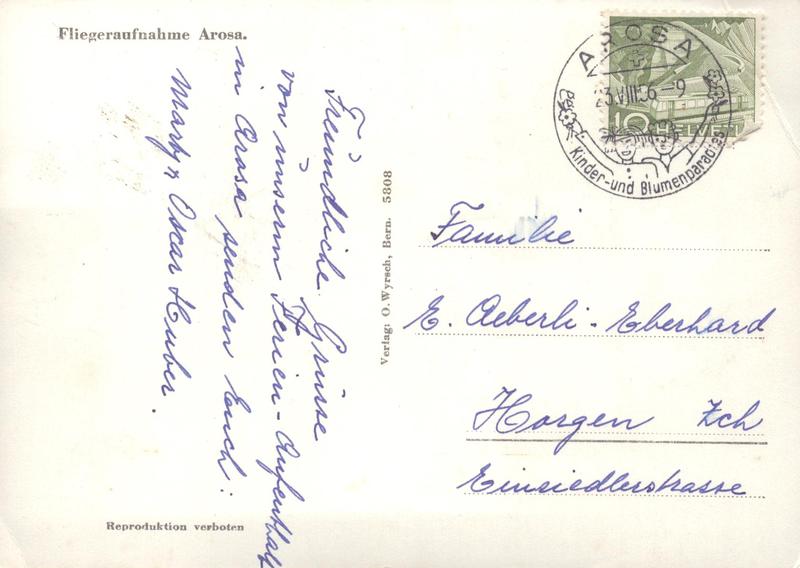 Fliegeraufnahme Arosa.
Freundliche Grüsse
von unserm Ferien-Aufenthalt
in Arosa senden Euch:
Oscar Huber.
Verlag: O. Wyrsch, Bern. 5808
Reproduktion verboten
AROSA
23.VIII.56-9
Kinder- und Blumenparadies
10 HELVETIA
Familie
E. Aeberli-Eberhard
Horgen Zch
Einsiedlerstrasse